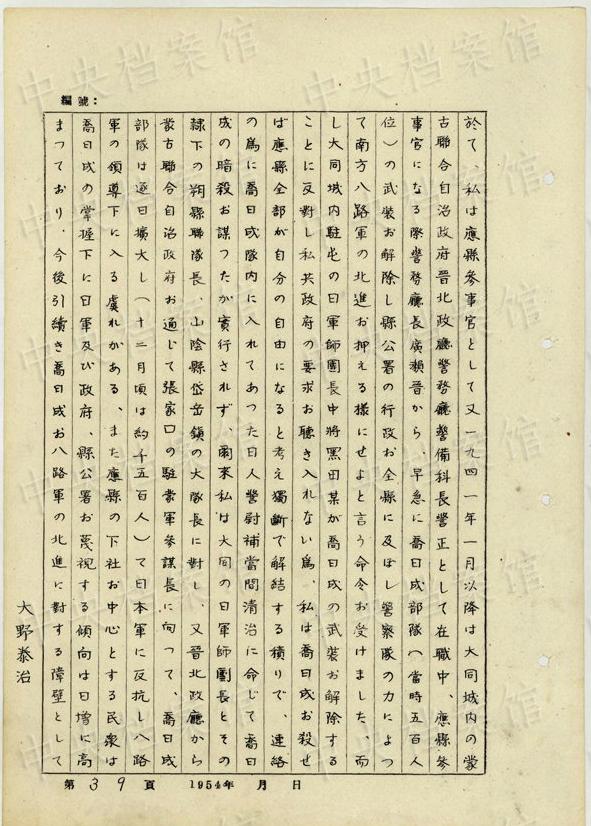 編號：
於て、私は應縣参事官として又一九四一年一月以降は大同城内の蒙
古聯合自治政府晋北政廳警務廳警備科長警正として在職中、應縣参
事官になる際警務廳長廣瀬晋から、早急に喬日成部隊（當時五百人
位）の武装お解除し縣公署の行政お全縣に及ぼし警察隊の力によっ
て南方八路軍の北進お押える様にせよと言う命令お受けました、而
し大同城内駐屯の日軍師團長中將黑田某が喬日成の武装お解除する
ことに反對し私共政府の要求お聴き入れない為、私は喬日成お殺せ
ば應縣全部が自分の自由になると考え獨斷で解結する積りで、連絡
の為に喬日成隊内に入れてあった日人警尉補當間清治に命じて喬日
成の暗殺お謀ったが實行されず、爾来私は大同の日軍師團長とその
隷下の朔縣聯隊長、山陰縣岱岳鎮の大隊長に對し、又晋北政廳から
蒙古聯合自治政府お通じて張家口の駐蒙軍参謀長に向って、喬日成
部隊は逐日擴大し（十二月頃は約千五百人）て日本軍に反抗し八路
軍の領導下に入る虞れがある、また應縣の下社お中心とする民衆は
喬日成の掌握下に日軍及び政府、縣公署お蔑視する傾向は日增に高
まっており、今後引續き喬日成お八路軍の北進に對する障壁として
大野泰治
第39頁 1954年 月 日
中央档案馆